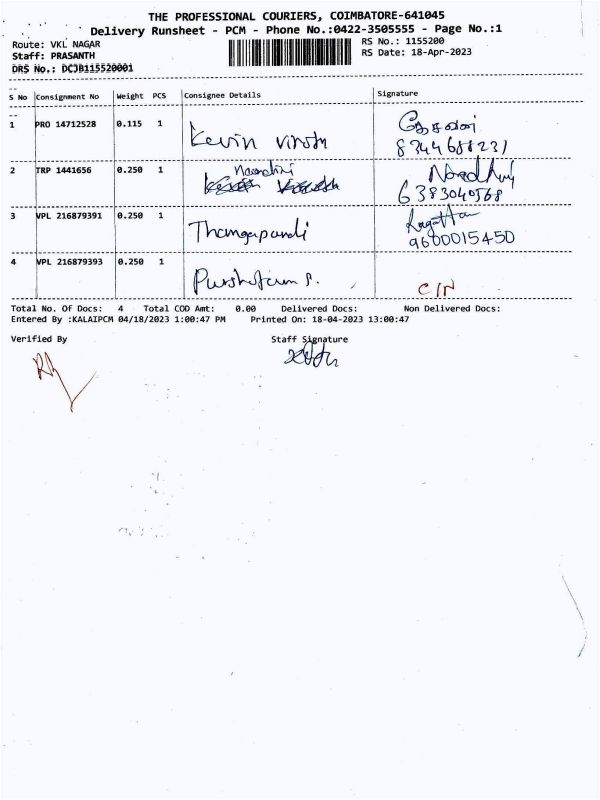 THE PROFESSIONAL COURIERS, COIMBATORE-641045
Delivery Runsheet - PCM - Phone No.:0422-3505555 - Page No.:1
Route: VKL NAGAR
RS No.: 1155200
Staff: PRASANTH
RS Date: 18-Apr-2023
DRS No.: DCJB115520001
S No Consignment No Weight PCS Consignee Details Signature
1 PRO 14712528 0.115 1 Kevin
8344688231
2 TRP 1441656 0.250 1 Nandini
6383040568
3 VPL 216879391 0.250 1 Thangapandi
9600015450
4 VPL 216879393 0.250 1 C/N
Total No. Of Docs: 4 Total COD Amt: 0.00 Delivered Docs: Non Delivered Docs:
Entered By :KALAIPCM 04/18/2023 1:00:47 PM Printed On: 18-04-2023 13:00:47
Verified By Staff Signature